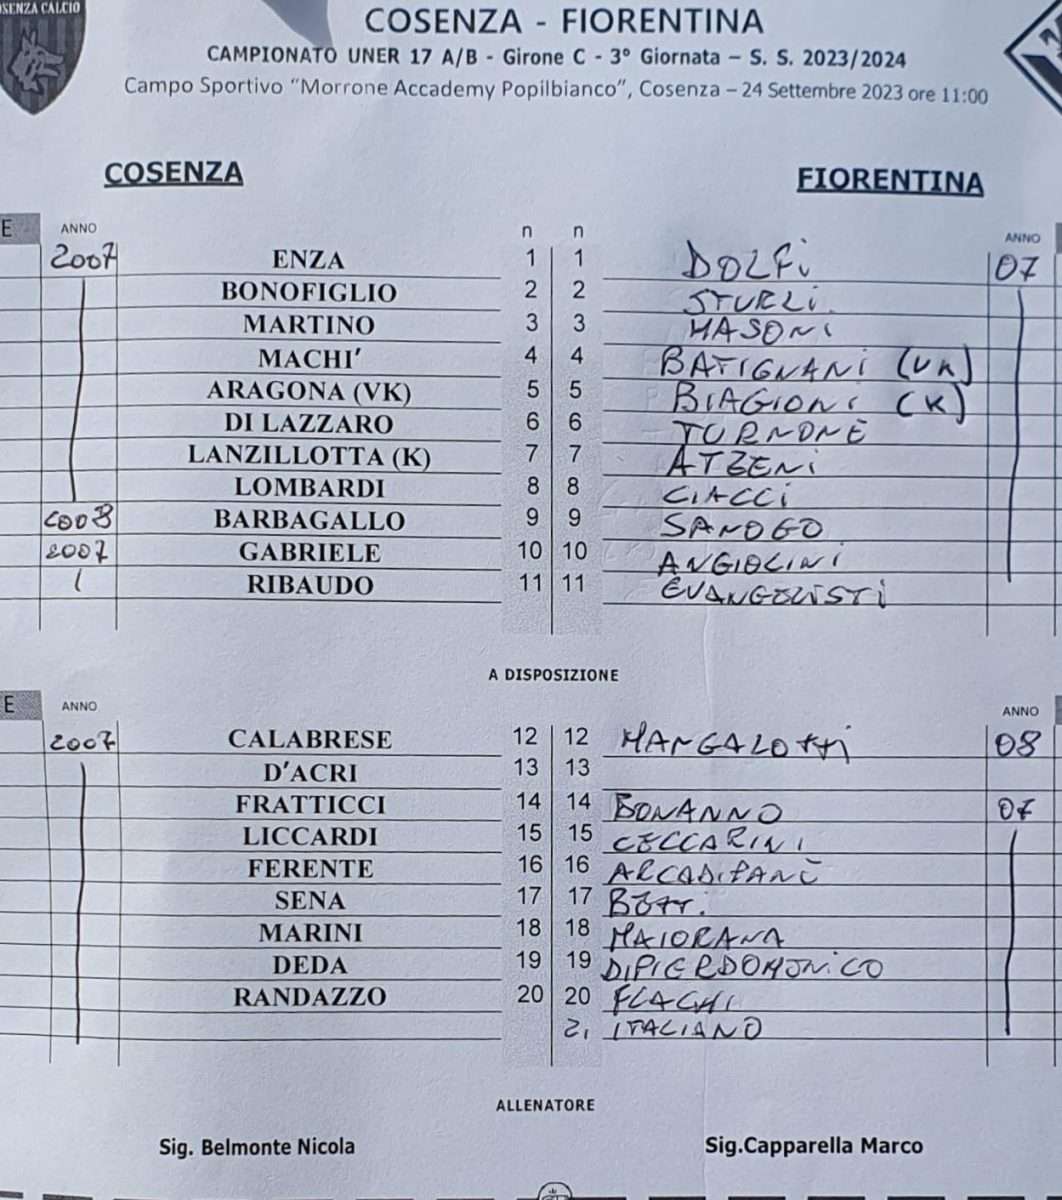 COSENZA CALCIO
COSENZA - FIORENTINA
CAMPIONATO UNER 17 A/B - Girone C - 3° Giornata – S. S. 2023/2024
Campo Sportivo “Morrone Accademy Popilbianco”, Cosenza – 24 Settembre 2023 ore 11:00
COSENZA FIORENTINA
E ANNO n n ANNO
2007 ENZA 1 1 DOLFI 07
BONOFIGLIO 2 2 STURLI
MARTINO 3 3 MASONI
MACHI’ 4 4 BATIGNANI (VK)
ARAGONA (VK) 5 5 BIAGIONI (K)
DI LAZZARO 6 6 TURNONE
LANZILLOTTA (K) 7 7 ATZENI
LOMBARDI 8 8 CIACCI
2008 BARBAGALLO 9 9 SANOGO
2007 GABRIELE 10 10 ANGIOLINI
RIBAUDO 11 11 EVANGELISTI
A DISPOSIZIONE
E ANNO ANNO
2007 CALABRESE 12 12 MANGALOTTI 08
D’ACRI 13 13
FRATTICCI 14 14 BONANNO 07
LICCARDI 15 15 CECCARINI
FERENTE 16 16 ARCADIPANE
SENA 17 17 BOTT.
MARINI 18 18 MAIORANA
DEDA 19 19 DIPIERDOMONICO
RANDAZZO 20 20 FLAGHI
21 ITALIANO
ALLENATORE
Sig. Belmonte Nicola Sig.Capparella Marco